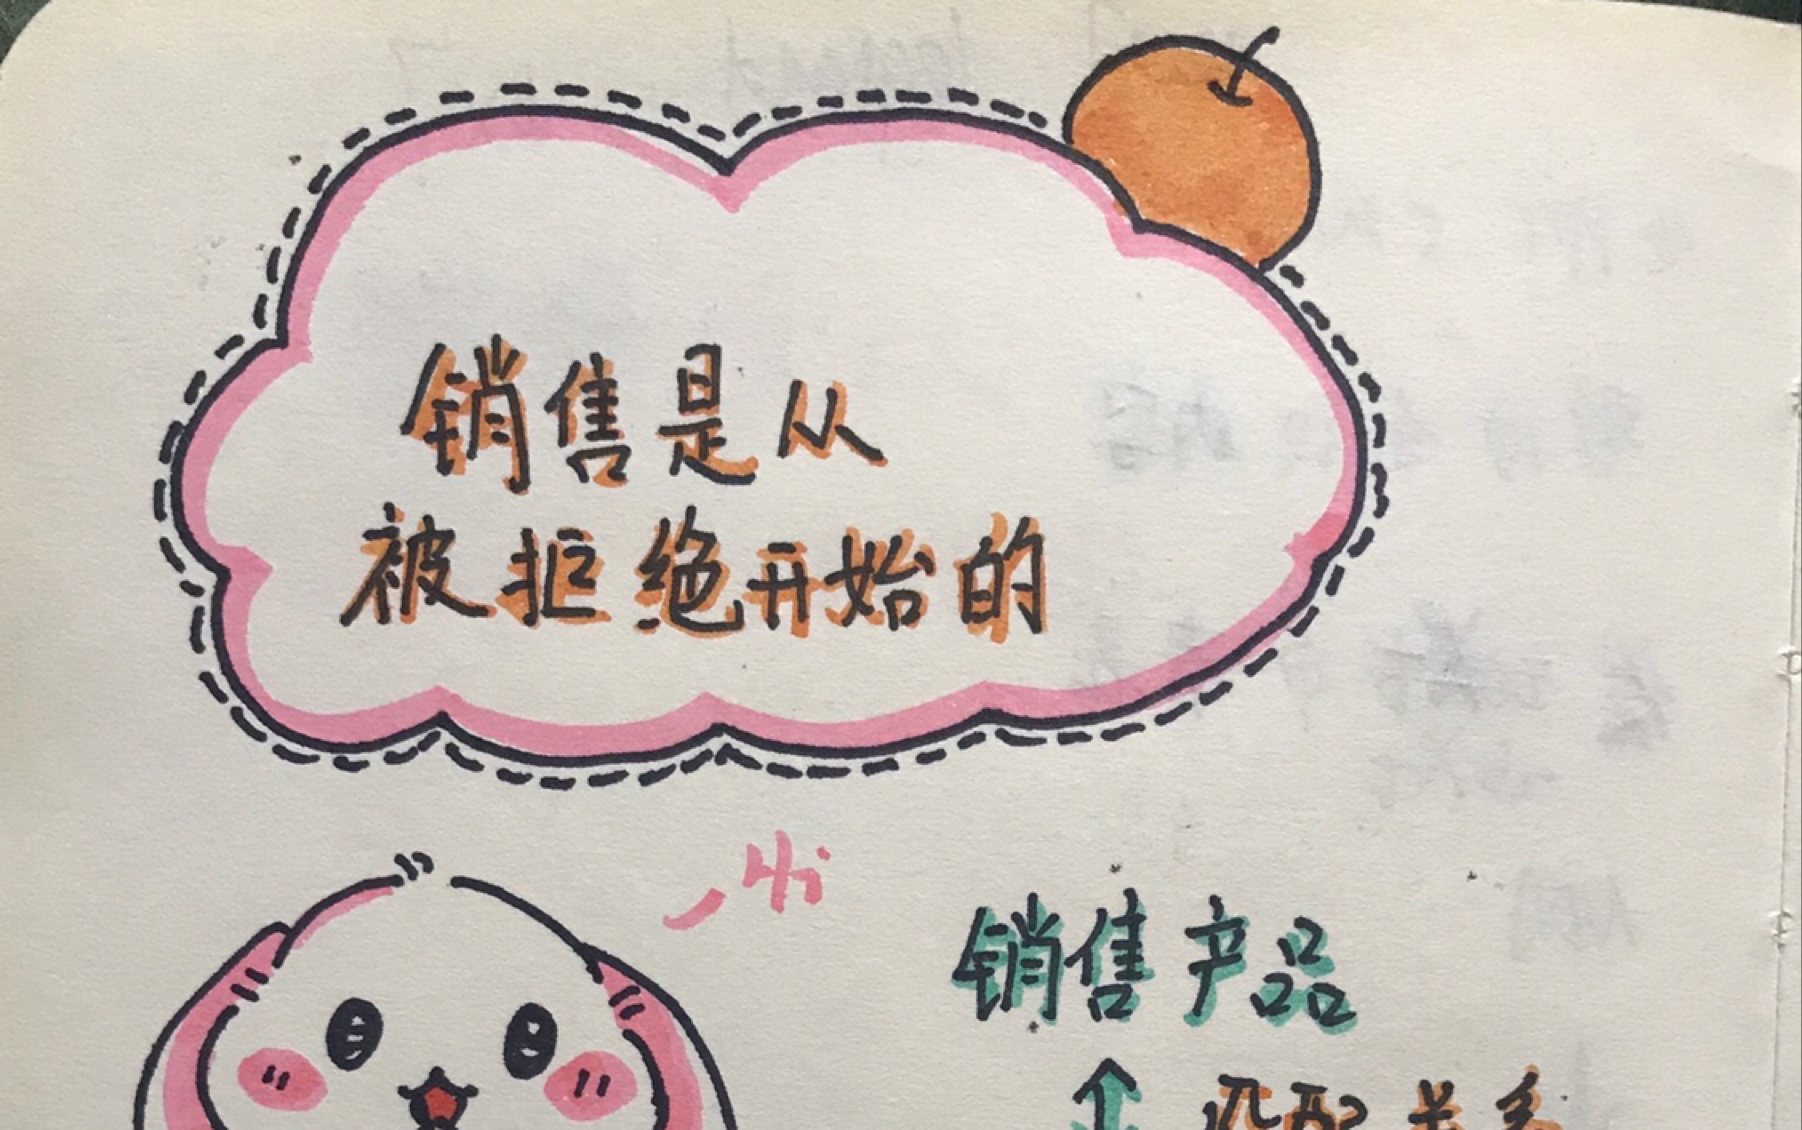 销售是从
被拒绝开始的
Hi
销售产品
匹配关系